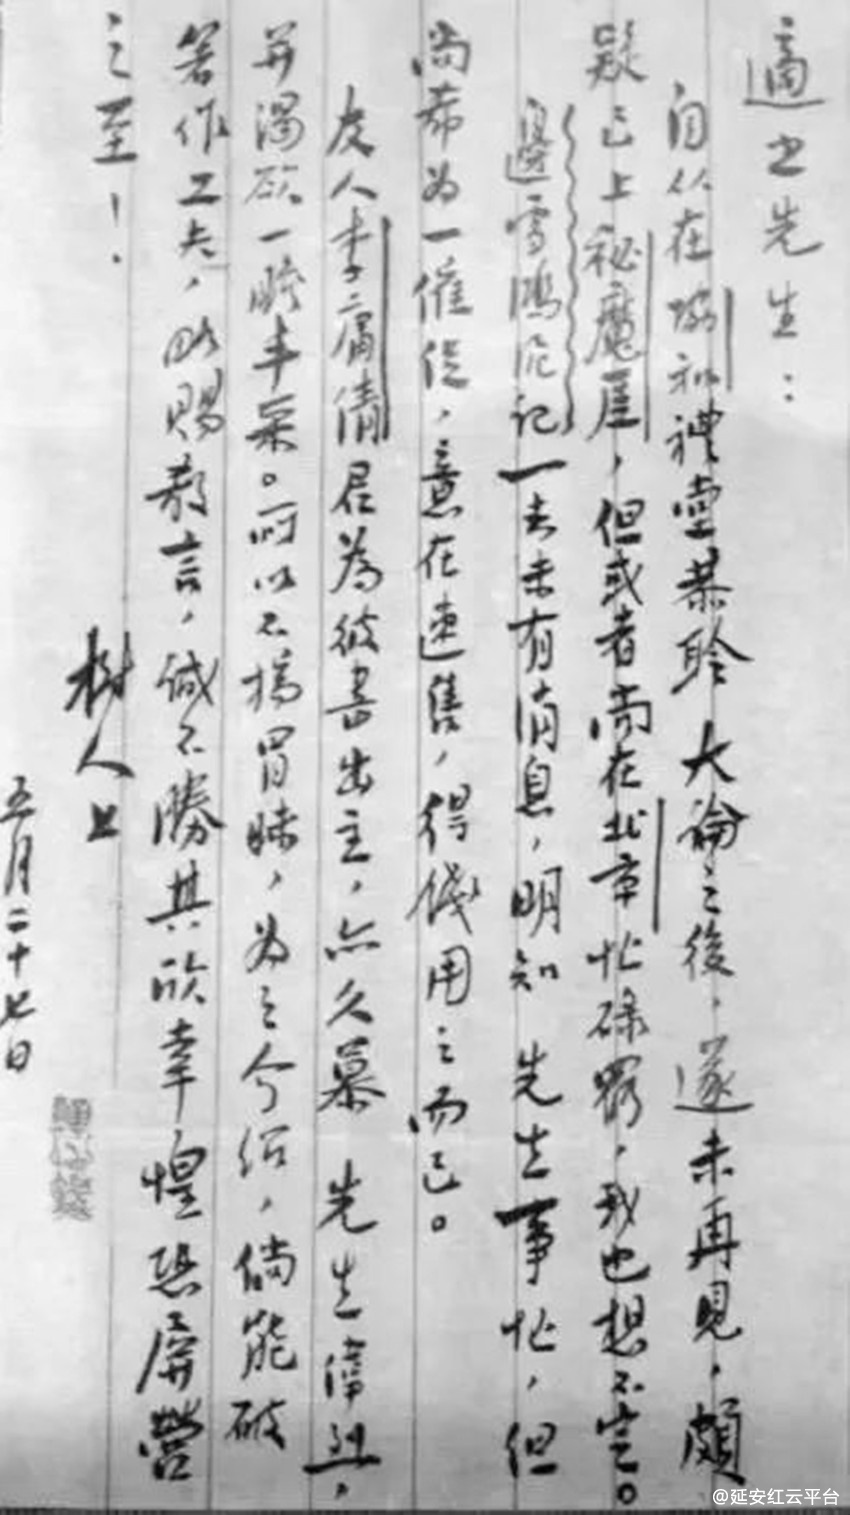 適之先生：
自从在协和禮堂恭聆大論之後，遂未再見，頗
疑已上秘魔崖，但或者尚在北京忙碌罷，我也想不定。
邊雪鴻泥記一去未有消息，明知 先生事忙，但
尚希为一催促，意在速售，得錢用之而已。
友人李庸倩君為彼書出主，亦久慕 先生偉烈，
并渴欲一瞻丰采。所以不揣冒昧，为之介绍，倘能破
著作工夫，略賜教言，誠不勝其欣幸惶恐屏營
之至！
樹人上
五月二十七日
@延安红云平台